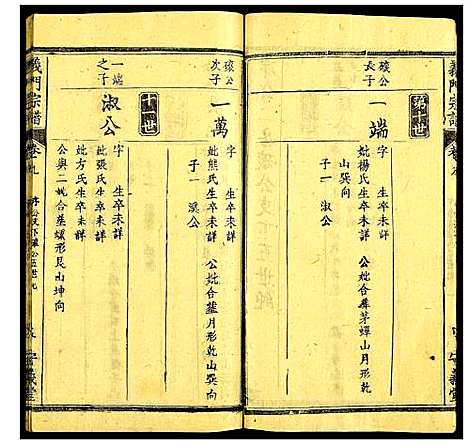 義門宗譜
第九世
磙公
長子
一端
字 生卒未詳
妣楊氏生卒未詳 公妣合葬茅蟬山月形乾
山巽向
子一 淑公
磙公
次子
一萬
字 生卒未詳
妣熊氏生卒未詳 公妣合葬月形乾山巽向
子一 溪公
十世
一端
之子
淑公
字 生卒未詳
妣張氏生卒未詳
妣方氏生卒未詳
公與二妣合葬螺形艮山坤向
義門宗譜
卷九
義堂